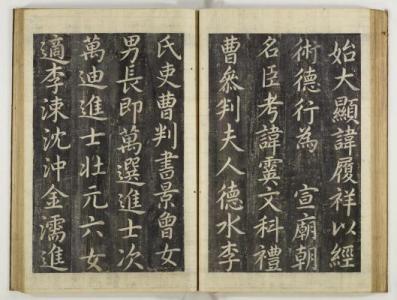 始大顯諱履祥以經
術德行為 宣廟朝
名臣考諱霙文科禮
曹叅判夫人德水李
氏吏曹判書景曾女
男長即萬選進士次
萬迪進士壯元六女
適李涑沈沖金濡進